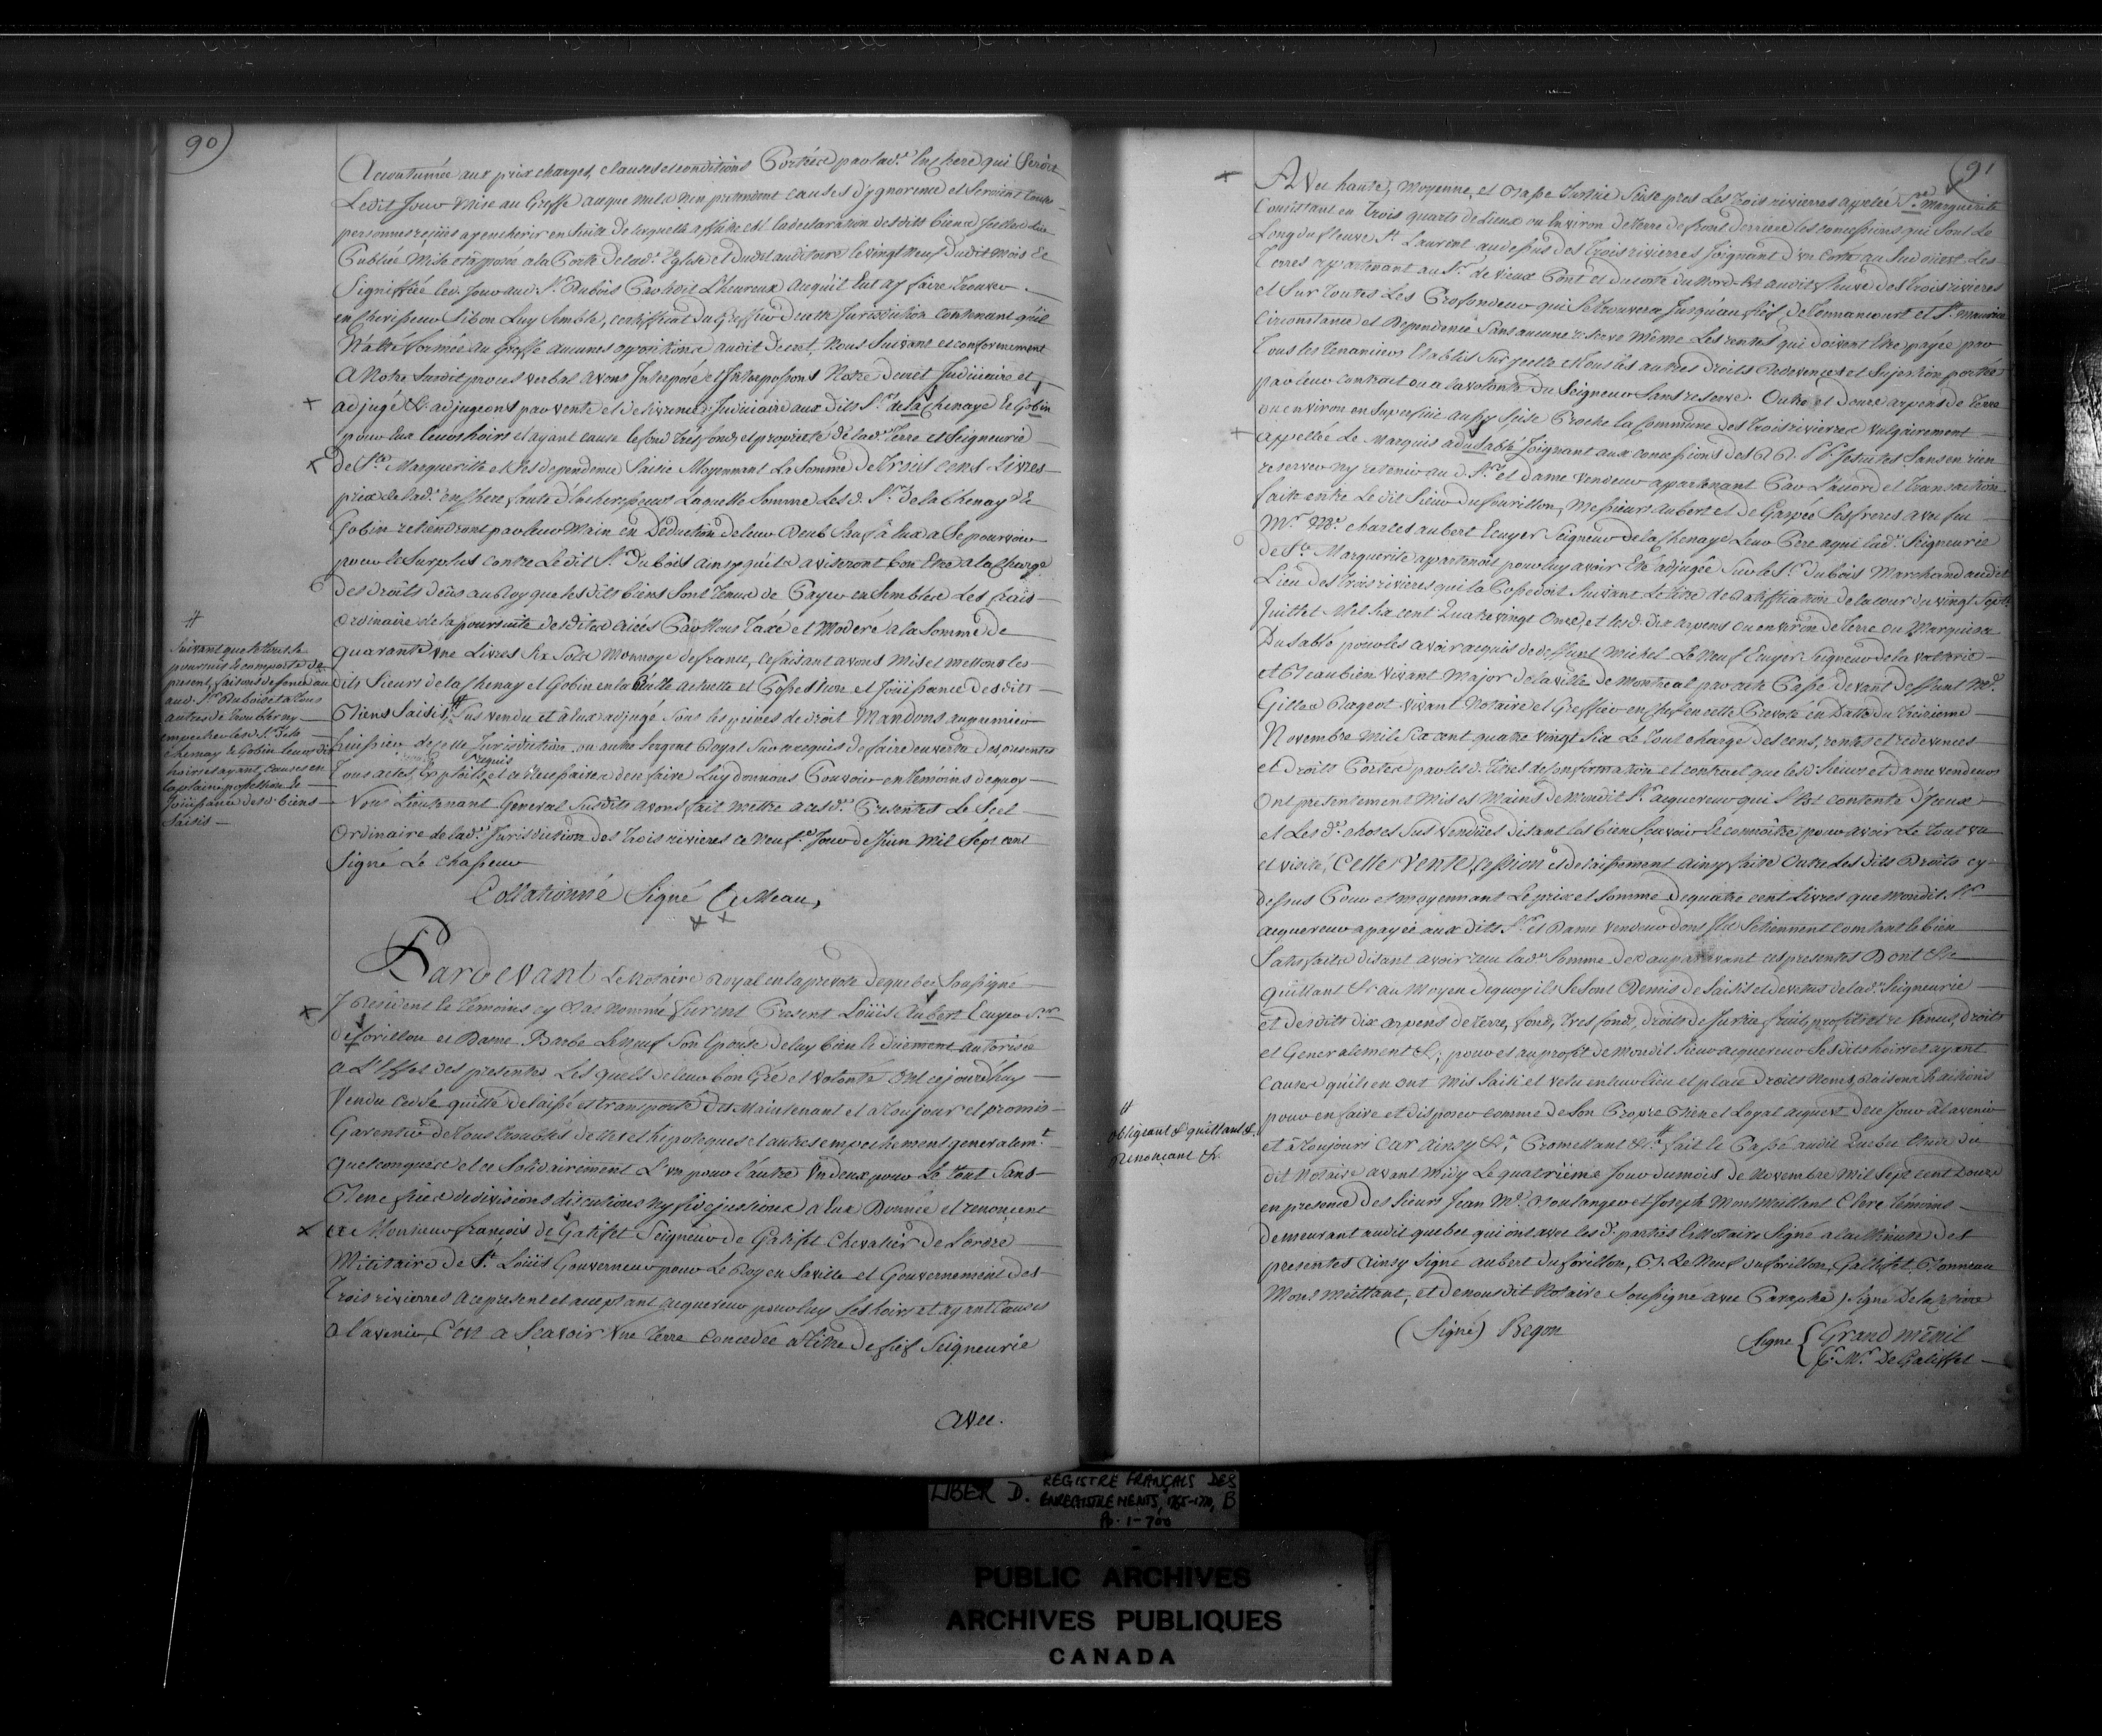 90)
Accoutumée aux prix charges, clauses et conditions Portées par lad.e Enchere qui Seroit
Ledit Jour Mise au Greffe aceque nul n'en pretendent causes d'ygnorence et Seroient toutes
personnes reçües a y encherir en Suitte de laquelle affiche est la declaration desdits biens
Publiée Mise et apposée a la Porte de lad.e Eglise et dudit auditoire le vingt neuf dudit mois Et
Signiffiée led. Jour aud. S.r Dubois Par ledit L'heureux aceq'uil Eut a y faire trouver
encherisseur Si bon Luy Semble, certifficat du Greffier de cette Jurisdiction contenant qu'il
N'a été formée au Greffe aucunes oppositions audit decret, Nous Suivant et conformement
A Notre Susdit procès verbal avons Interposé et Interposons Notre decret Judiciaire et
adjugé & adjugeons par vente et delivrance Judiciaire aux dits S.rs de la Chenaye Et Gobin
pour Eux leurs hoirs et ayant cause le fond très fonds et proprieté de lad.e Terre et Seigneurie
de S.te Margueritte et Ses dependence Saisie Moyennant La Somme de Trois cens Livres
prix de lad.e enchere faute d'encherisseurs Laquelle Somme Les d. S.rs de la Chenaye Et
Gobin retiendront par leur Main en Deduction de leur Deub Sauf à Eux a Se pourvoir
pour le Surplus contre Ledit S.r Dubois ainsy qu'ils aviseront bon Etre a la Charge
des droits deüs au Roy que les dits biens Sont Tenus de Payer ensembles Les frais
Ordinaire de la poursuite desdites criées Par Nous Taxé et Moderé a la Somme de
quarante une Livres Six Sols Monnoye de france, ce faisant avons Mis et mettons les
dits Sieurs de la Chenay et Gobin en la Réelle actuelle et Possession et Joüissance desdits
Biens Saisis # Sus vendu et à Eux adjugé Sous les peines de droit Mandons au premier
huissier de cette Jurisdiction ou autre Sergent Royal Sur ce requis de faire en vertu des presentes
requis
Tous actes, Exploits et ce Necessaires de ce faire Luy donnons Pouvoir en temoins de quoy
Nous Lieutenant General Susdits avons fait mettre a cesd.es Presentes Le Scel
Ordinaire de lad.e Jurisdiction des trois rivieres ce Neuf.e Jour de Juin Mil Sept cent
Signé Le Chasseur
Collationné Signé
#
Suivant que le tout se
poursuit le comporte de
present, faisons defence au
aud. S.r Dubois et a tous
autres de troubler ny
empecher les d. S.rs de la
Chenay & Gobin leurs dits
hoirs et ayant causes en
la plaine possession Et
Joüissance des d. biens
Saisis
Pardevant Le Notaire Royal en la prevote de quebec Soussigné
Y Resident Et Temoins cy bas Nommé furent Present Loüis Aubert Ecuyer S.r
duforillon et Dame Barbe Leneuf Son Epouse deluy bien et düement autorisée
a L'Effet des presentes Lesquels de leur bon Gré et Volonté Ont cejourdhuy
Vendu cedde quitté delaissé et transporté Des Maintenant et a Toujour et promis
Garentir de Tous troubles dettes et hypoteques et autres empechemens generalem.t
quelconques et ce Solidairement L'un pour l'autre Un d'eux pour Le Tout Sans
Benefices de divisions discutions ny fidejussions a Eux Donnée et renoncent
a Monsieur françois de Galifet Seigneur de Galifet Chevalier de L'ordre
Militaire de S.t Loüis Gouverneur pour Le Roy en Saville et Gouvernement des
Trois rivierres a ce present et acceptant acquereur pour luy Ses hoirs et ayant Causes
a l'avenir C'est a Scavoir Une Terre Concedée a Titre de fief Seigneurie
Avec.
91
Avec haute, Moyenne, et Basse Justice Scise pres Les Trois rivierres appelée S.te Marguerite
Consistant en Trois quarts de Lieux ou Environ de Terre de front derriere les concessions qui Sont Le
Long du fleuve S.t Laurent au dessus des Trois rivierres Joignant D'un Costé au Sud Ouest Les
Terres appartenant au S.r de vieux Pont et du costé du Nord Est audit fleuve des Trois rivieres
et Sur toutes Les Profondeur qui Se trouvera Jusqu'au fief de Tonnancourt et S.t Maurice
Circonstance et Dependence Sans aucune reserve Même Les rentes qui doivent Etre payée par
Tous les tenanciers Etablis Sur ycelle et Tous les autres droits Redevences et Sujestion portée
par leur contract ou a la volonté du Seigneur Sans reserve. Outre et douze arpens de Terre
ou environ en Superficie aussy Scise Proche la Commune des Trois rivierres Vulgairement
appellée Le Marquis adusablé Joignant aux concessions des RR. PP. Jesuites Sans en rien
reserver ny retenir au d. S.r et Dame vendeur appartenant Par L'accord et Transaction
faite entre Ledit Sieur duforillon, Messieurs Aubert et de Gaspee Ses freres avec feu
M.r M.e Charles aubert Ecuyer Seigneur de la Chenaye Leur Pere a qui lad.e Seigneurie
de S.te Marguerite appartenoit pour luy avoir Eté adjugée Sur le S.r Dubois Marchand audit
Lieu des Trois rivieres qui la Possedoit Suivant Le Titre de Ratiffication de la cour du vingt Sept.e
Juillet Mil Six cent Quatre vingt Onze, et les d. Dix arpens ou environ de Terre ou Marquisa
Dusable pour les avoir acquis de deffunt Michel Le Neuf Ecuyer Seigneur de la Vallerie
et Beaubien vivant Major de la ville de Montreal par acte Passé devant deffunt M.e
Gilles Rageot vivant Notaire et Greffier en chef en cette Prevoté en Datte du Treizieme
Novembre Mil Six cent quatre vingt Six Le Tout charge des cens, rentes et redevences
et Droits Portés par les d. titres de confirmation et contract que les d. Sieurs et Dame vendeurs
Ont presentement Mis es Mains de Mondit S.r acquereur qui S'est contenté d'Yceux
et Les d.es choses Sus vendües disant les bien Sçavoir Et connoitre pour avoir Le Tout vu
et visité, Cette Vente, cession et delaissement ainsy faite Outre Les dits Droits cy
dessus Pour et moyennant Le prix et Somme de quatre cent Livres que Mondit S.r
acquereur a payée aux dits S.r et Dame vendeur dont Ils Se tiennent Contant Et bien
Satisfaits disant avoir reçu lad.e Somme des auparavant ces presentes Dont &c
Quittant &c au Moyen dequoy ils Se Sont Demis de Saisis et devetus de lad.e Seigneurie
et desdits dix arpens de terre, fond, tres fond, droits de Justice fruits, profits et revenus, droits
et Generalement &c; pour et au profit de Mondit Sieur acquereur Ses dits hoirs et ayant
Causes qu'ils en ont Mis Saisi et vetu en leur lieu et place Droits Noms, Raisons Et actions
pour en faire et disposer comme de Son Propre Bien et Loyal acquest de ce Jour à l'avenir
et à Toujours Car ainsy &c.a Promettant &c.a # fait Et Passé audit Quebec Etude du
dit Notaire avant Midy Le quatrieme Jour du mois de Novembre Mil Sept cent Douze
en presence des Sieurs Jean M.e Boulanger et Joseph Monmeillant Clerc temoins
demeurant audit quebec qui ont avec les d. parties Et Notaire Signé a la Minute des
presentes Ainsy Signé aubert duforillon, B. Le Neuf duforillon, Gallifet, Bonneau
Mons Meillant, et de nous dit Notaire Soussigné avec Paraphe) Signé Delacetiere
(Signé) Begon
Signé { Grand Ménil
p.r M.r De Galiffet
#
Obligeant & quittant &
Renonçant &
LIBER D. REGISTRE FRANÇAIS DES
ENREGISTREMENTS, B
Pp. 1-700
PUBLIC ARCHIVES
ARCHIVES PUBLIQUES
CANADA